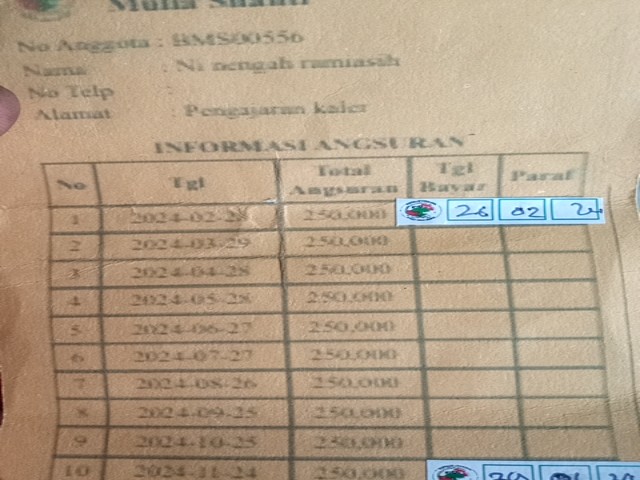 No Anggota : BMS00556
Nama : Ni nengah ramiasih
No Telp :
Alamat : Pengajaran kaler
INFORMASI ANGSURAN
No Tgl Total Angsuran Tgl Bayar Paraf
1 2024-02-28 250,000 26 02 24
2 2024-03-29 250,000
3 2024-04-28 250,000
4 2024-05-28 250,000
5 2024-06-27 250,000
6 2024-07-27 250,000
7 2024-08-26 250,000
8 2024-09-25 250,000
9 2024-10-25 250,000
10 2024-11-24 250,000